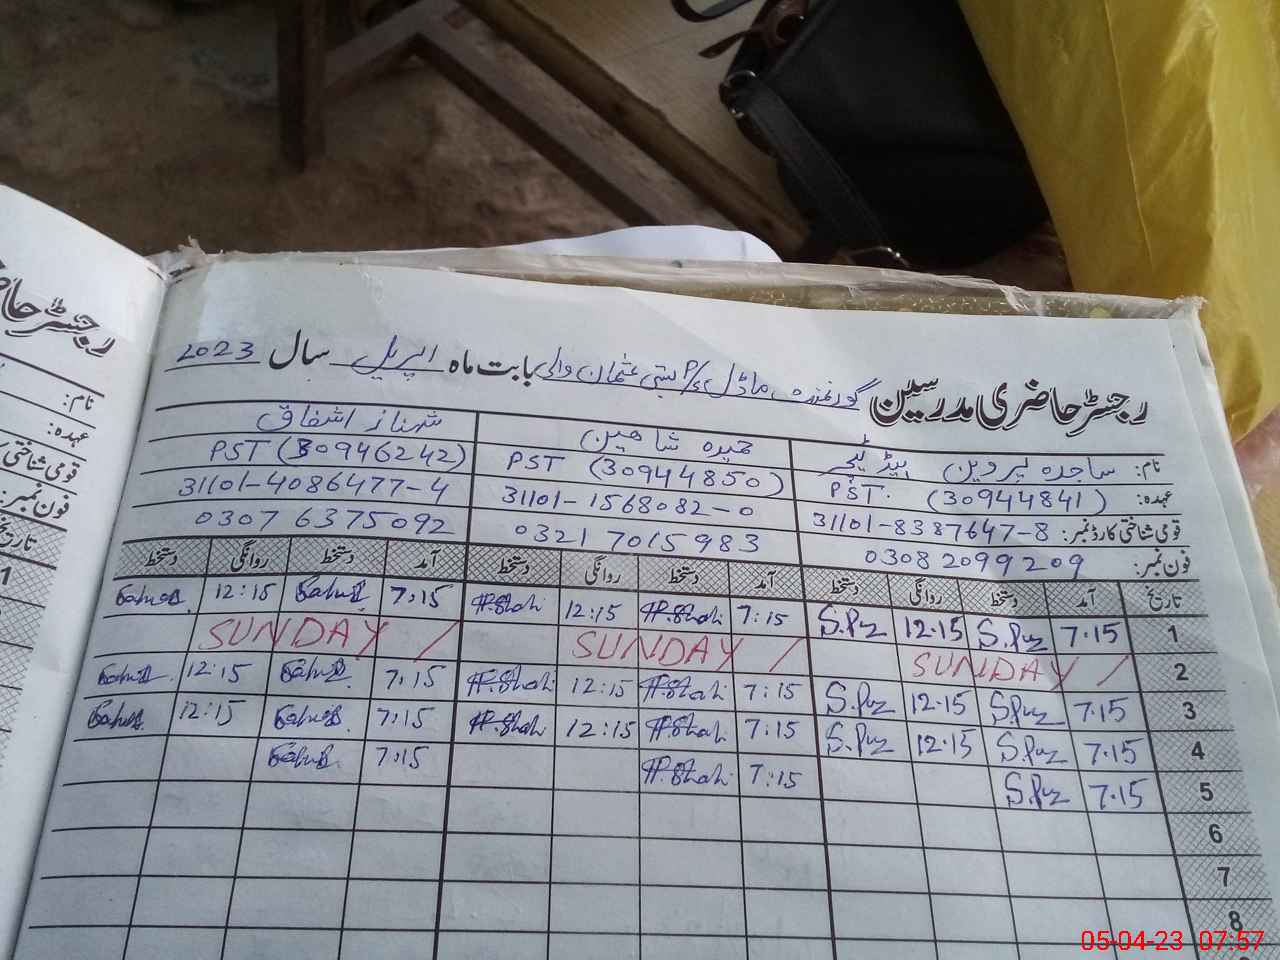 رجسٹر حاضری مدرسین گورنمنٹ ماڈل P/S بستی عثمان والی بابت ماہ اپریل سال 2023
نام: ساجدہ پروین ہیڈ ٹیچر حمیرہ شاھین شہناز اشفاق
عہدہ: PST. (30944841) PST (30944850) PST (30946242)
قومی شناختی کارڈ نمبر: 31101-8387647-8 31101-1568082-0 31101-4086477-4
فون نمبر: 0308 2099209 0321 7015983 0307 6375092
تاریخ آمد دستخط روانگی دستخط آمد دستخط روانگی دستخط آمد دستخط روانگی دستخط
1 7.15 S.Puz 12.15 S.Puz 7:15 H.Shah 12:15 H.Shah 7.15 12:15
2 SUNDAY / SUNDAY / SUNDAY /
3 7.15 S.Puz 12.15 S.Puz 7:15 H.Shah 12:15 H.Shah 7.15 12:15
4 7.15 S.Puz 12.15 S.Puz 7:15 H.Shah 12:15 H.Shah 7.15 12:15
5 7.15 S.Puz 7:15 H.Shah 7.15
6
7
8
رجسٹر
نام:
عہدہ:
قومی شناختی
فون نمبر:
تاریخ
1
05-04-23 07:57